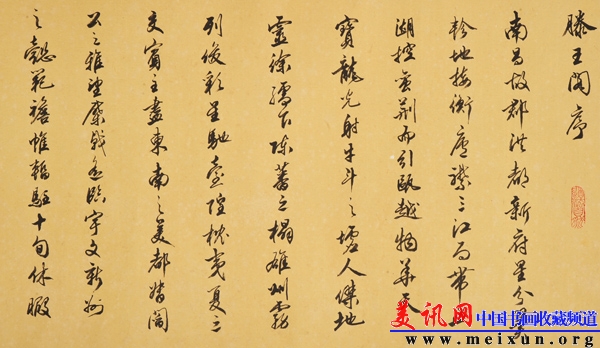 滕王阁序
南昌故郡洪都新府星分翼
軫地接衡廬襟三江而帶五
湖控蛮荆而引甌越物華天
寶龍光射牛斗之墟人傑地
靈徐孺下陳蕃之榻雄州霧
列俊彩星馳臺隍枕夷夏之
交賓主盡東南之美都督閻
公之雅望棨戟遥臨宇文新州
之懿範襜帷暫駐十旬休暇
美讯网 中国书画收藏频道
www.meixun.org